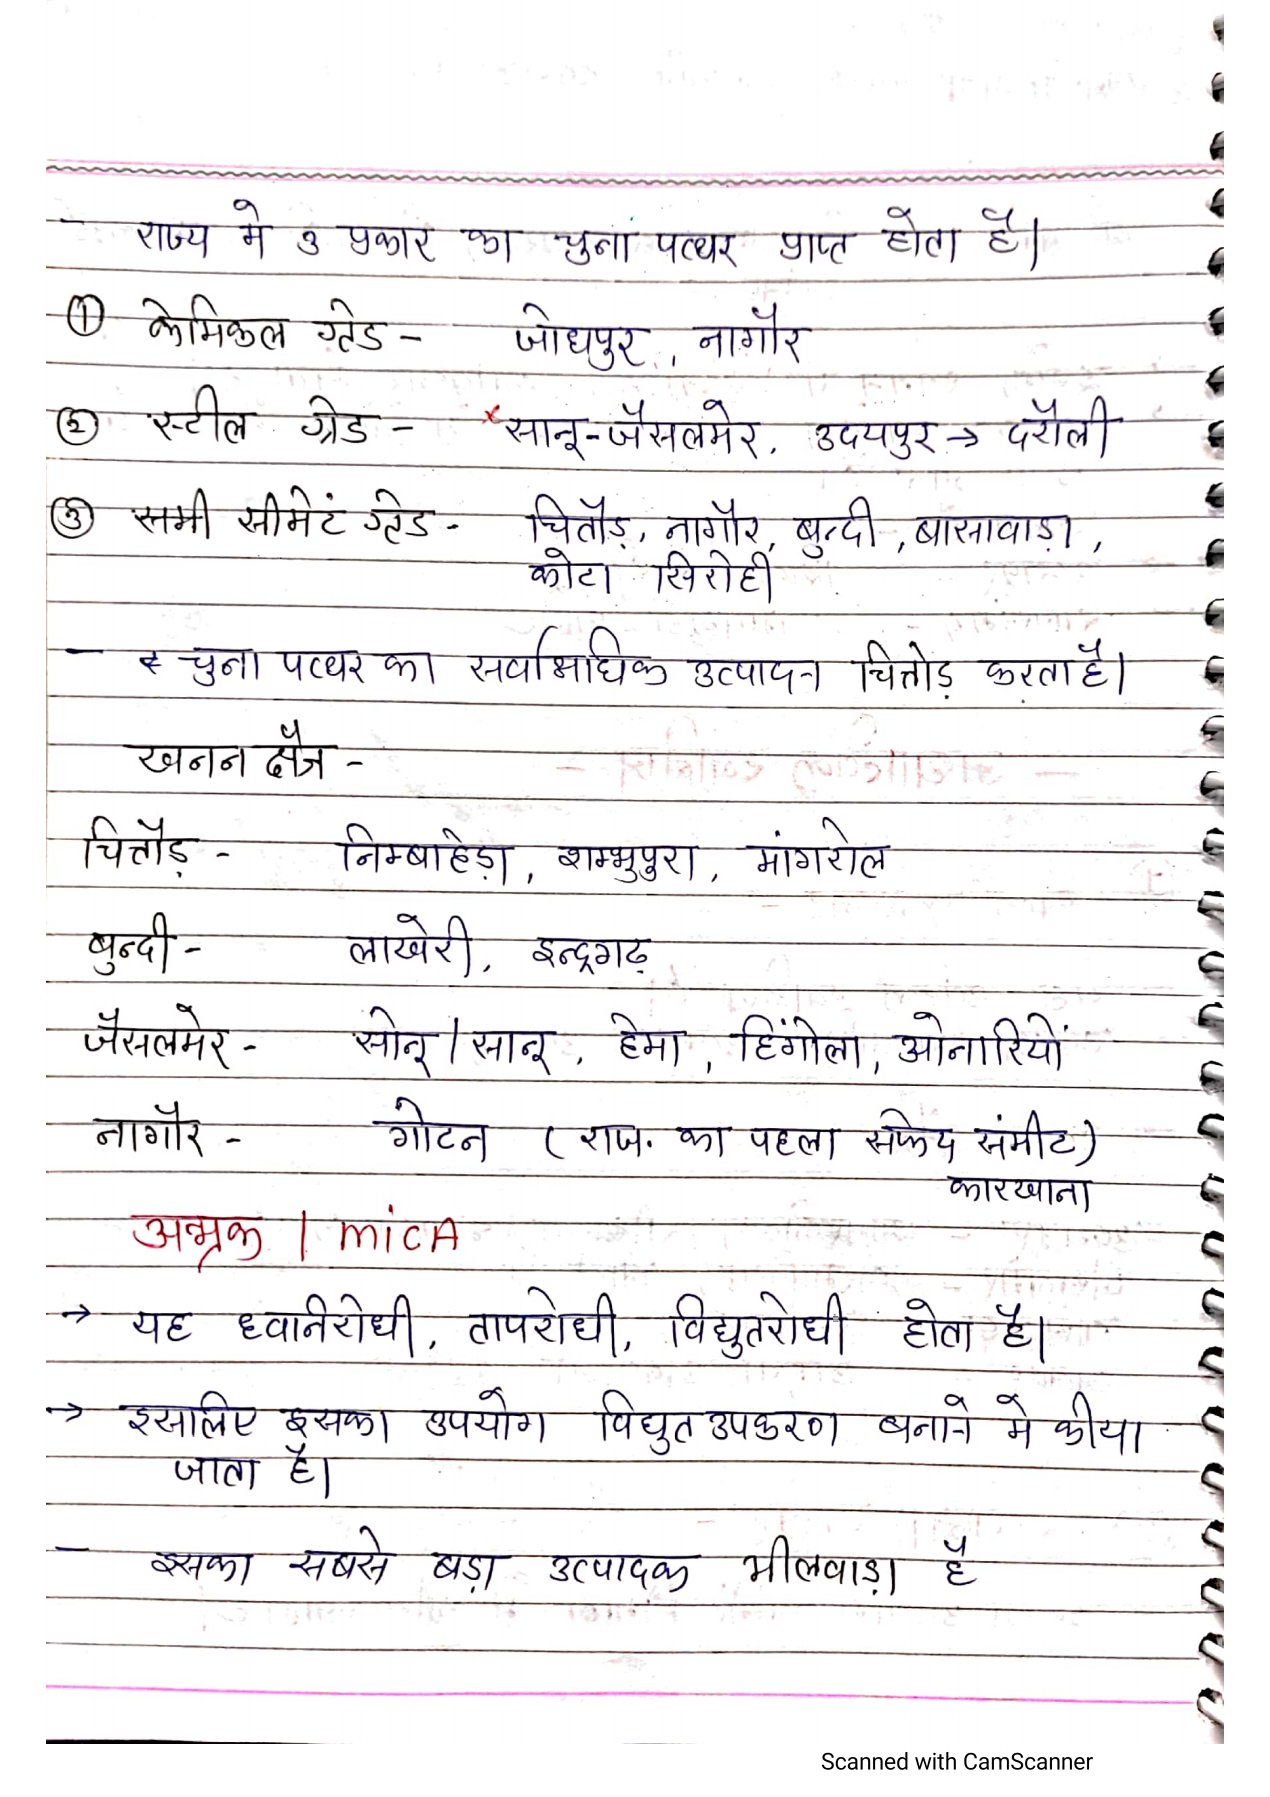 - राज्य मे 3 प्रकार का चुना पत्थर प्राप्त होता है।
① केमिकल ग्रेड - जोधपुर, नागौर
② स्टील ग्रेड - *सानू-जैसलमेर, उदयपुर → दरौली
③ सभी सीमेटं ग्रेड - चितौड़, नागौर, बुन्दी, बासावाड़ा,
कोटा सिरोही
- चुना पत्थर का सर्वाअधिक उत्पादन चित्तोड़ करता है।
खनन क्षैत्र -
चित्तौड़ - निम्बाहेड़ा, शम्भुपुरा, मांगरोल
बुन्दी - लाखेरी, इन्द्रगढ़
जैसलमेर - सोनू / सानू, हेमा, हिंगोला, ओनारियों
नागौर - गोटन (राज. का पहला सफेद संमीट)
कारखाना
अभ्रक / MiCA
→ यह ध्वनिरोधी, तापरोधी, विद्युतरोधी होता है।
→ इसलिए इसका उपयोग विद्युत उपकरण बनाने मे कीया
जाता है।
- इसका सबसे बड़ा उत्पादक भीलवाड़ा है
Scanned with CamScanner